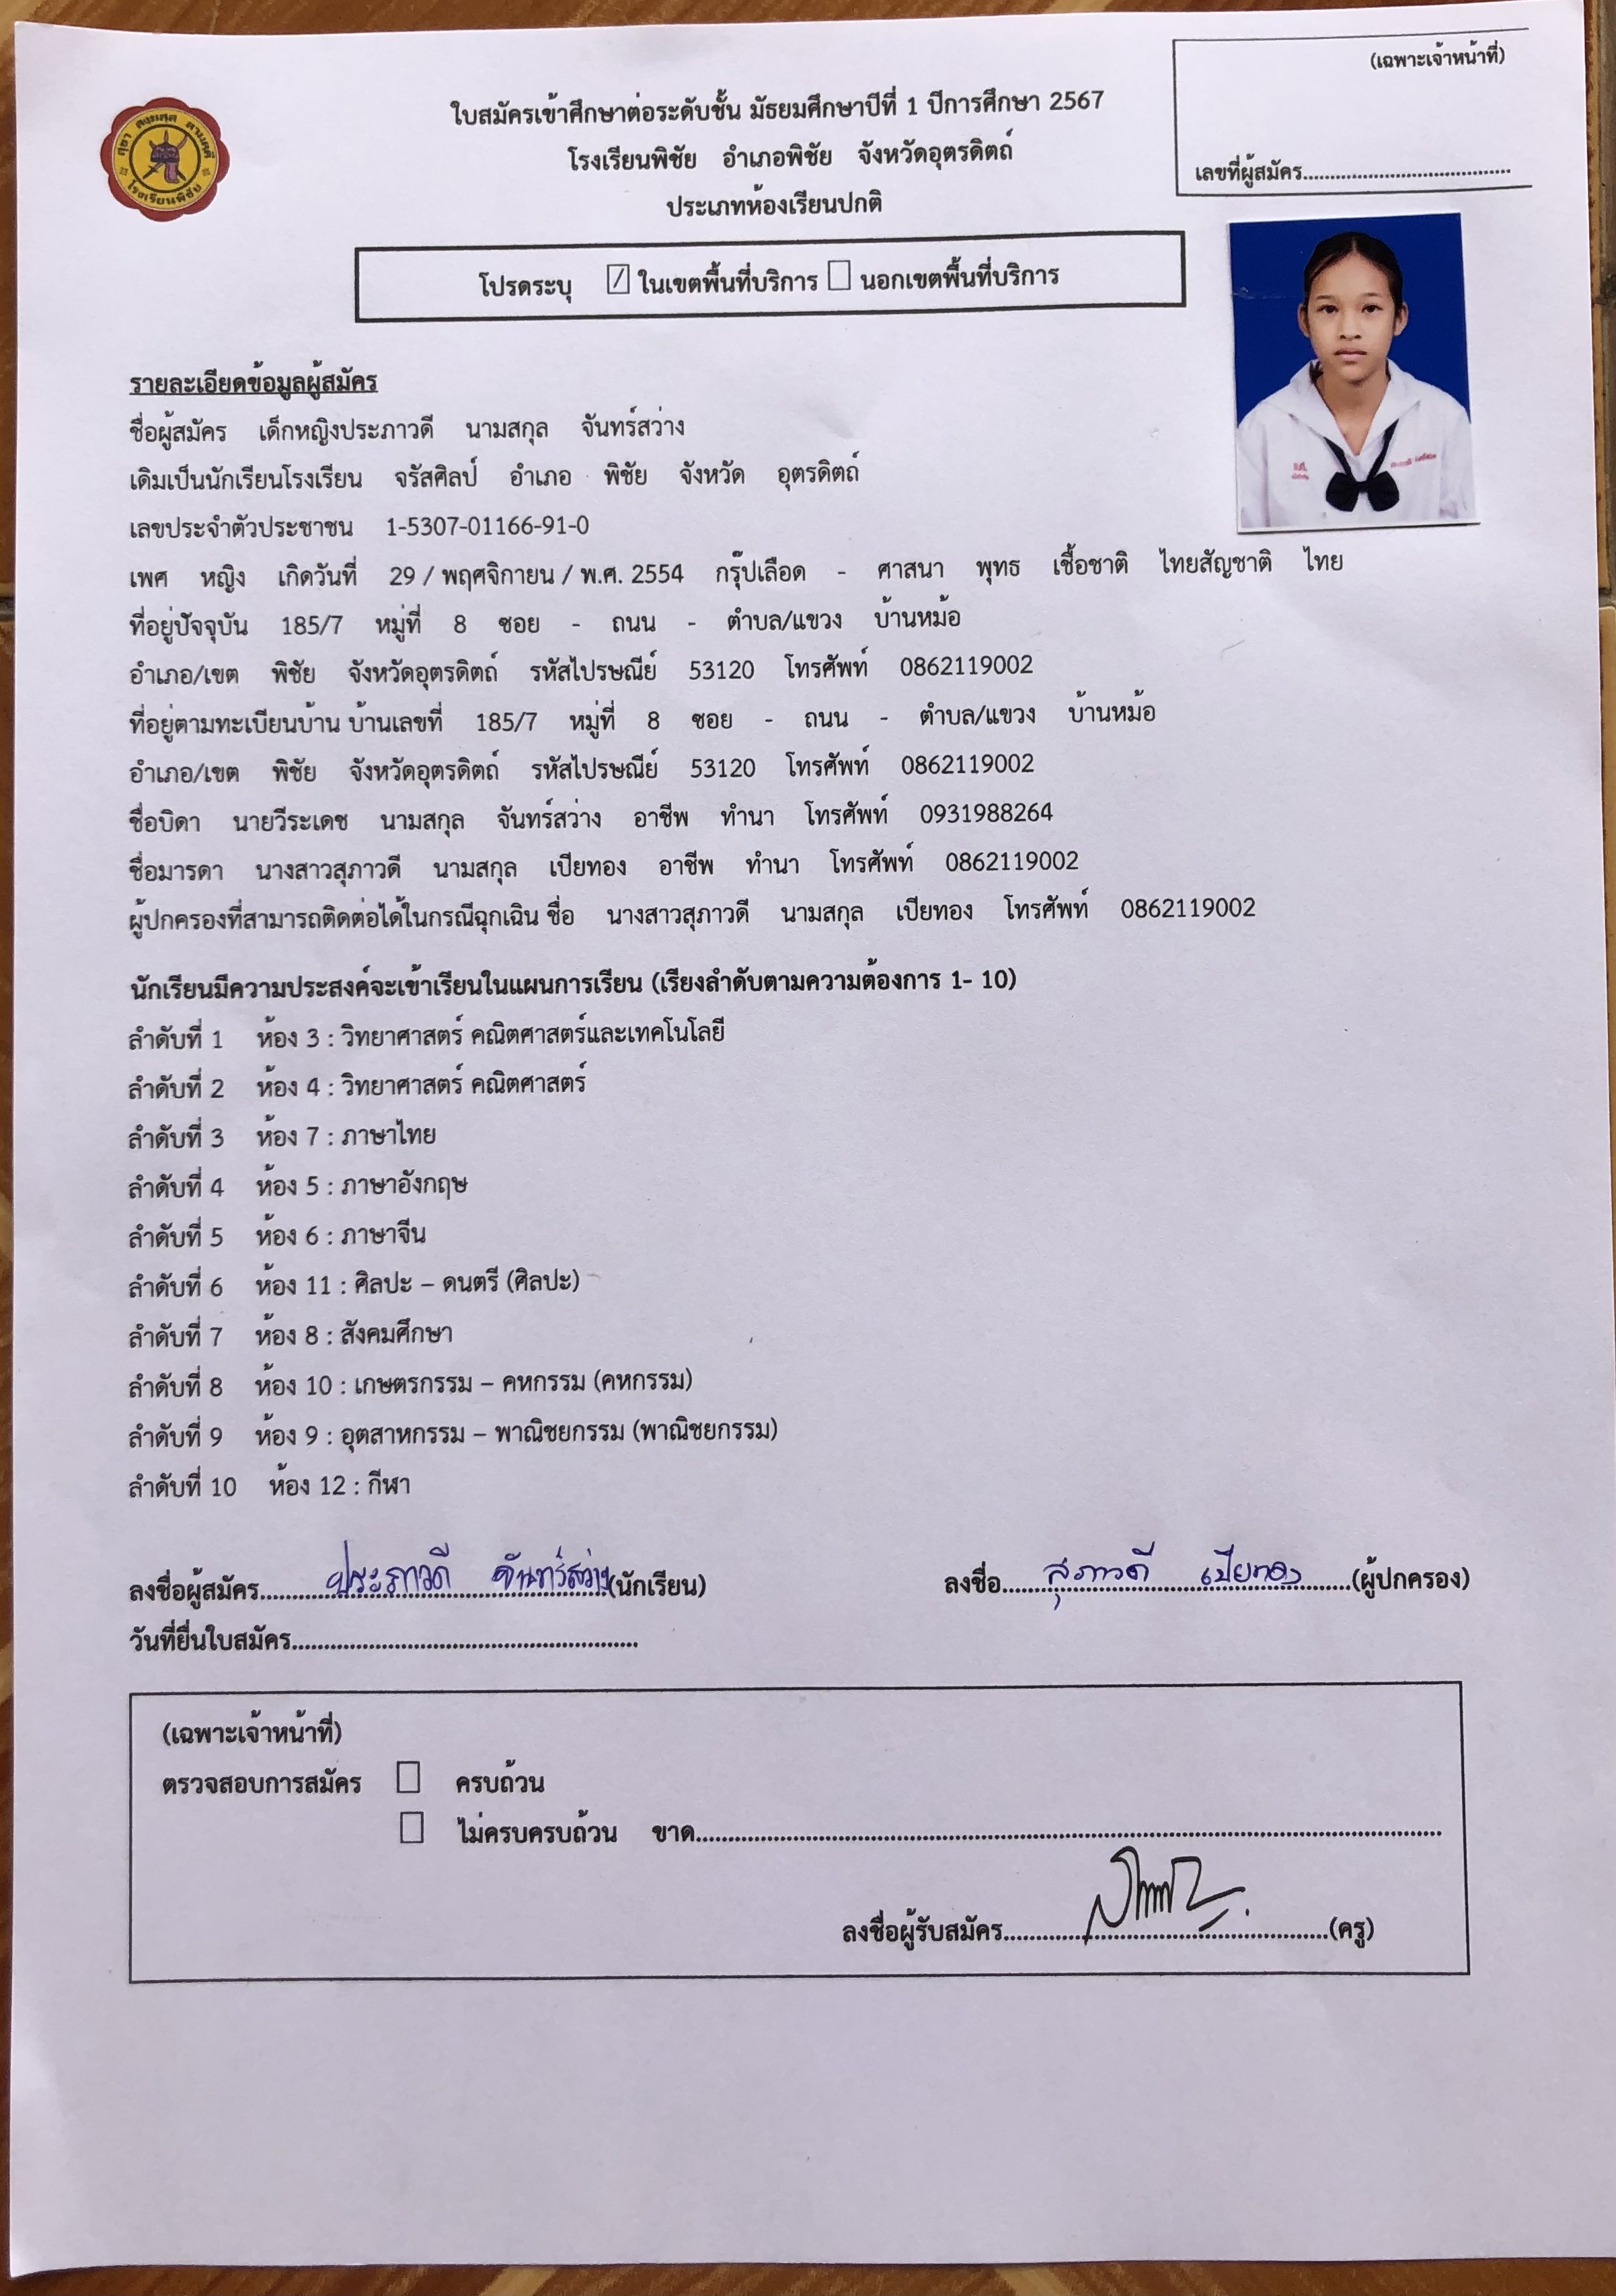 (เฉพาะเจ้าหน้าที่)
ใบสมัครเข้าศึกษาต่อระดับชั้น มัธยมศึกษาปีที่ 1 ปีการศึกษา 2567
โรงเรียนพิชัย อำเภอพิชัย จังหวัดอุตรดิตถ์
เลขที่ผู้สมัคร
ประเภทห้องเรียนปกติ
โรงเรียนพิชัย
โปรดระบุ ☑ ในเขตพื้นที่บริการ ☐ นอกเขตพื้นที่บริการ
รายละเอียดข้อมูลผู้สมัคร
ชื่อผู้สมัคร เด็กหญิงประภาวดี นามสกุล จันทร์สว่าง
เดิมเป็นนักเรียนโรงเรียน จรัสศิลป์ อำเภอ พิชัย จังหวัด อุตรดิตถ์
เลขประจำตัวประชาชน 1-5307-01166-91-0
เพศ หญิง เกิดวันที่ 29 / พฤศจิกายน / พ.ศ. 2554 กรุ๊ปเลือด - ศาสนา พุทธ เชื้อชาติ ไทยสัญชาติ ไทย
ที่อยู่ปัจจุบัน 185/7 หมู่ที่ 8 ซอย - ถนน - ตำบล/แขวง บ้านหม้อ
อำเภอ/เขต พิชัย จังหวัดอุตรดิตถ์ รหัสไปรษณีย์ 53120 โทรศัพท์ 0862119002
ที่อยู่ตามทะเบียนบ้าน บ้านเลขที่ 185/7 หมู่ที่ 8 ซอย - ถนน - ตำบล/แขวง บ้านหม้อ
อำเภอ/เขต พิชัย จังหวัดอุตรดิตถ์ รหัสไปรษณีย์ 53120 โทรศัพท์ 0862119002
ชื่อบิดา นายวีระเดช นามสกุล จันทร์สว่าง อาชีพ ทำนา โทรศัพท์ 0931988264
ชื่อมารดา นางสาวสุภาวดี นามสกุล เปียทอง อาชีพ ทำนา โทรศัพท์ 0862119002
ผู้ปกครองที่สามารถติดต่อได้ในกรณีฉุกเฉิน ชื่อ นางสาวสุภาวดี นามสกุล เปียทอง โทรศัพท์ 0862119002
นักเรียนมีความประสงค์จะเข้าเรียนในแผนการเรียน (เรียงลำดับตามความต้องการ 1- 10)
ลำดับที่ 1 ห้อง 3 : วิทยาศาสตร์ คณิตศาสตร์และเทคโนโลยี
ลำดับที่ 2 ห้อง 4 : วิทยาศาสตร์ คณิตศาสตร์
ลำดับที่ 3 ห้อง 7 : ภาษาไทย
ลำดับที่ 4 ห้อง 5 : ภาษาอังกฤษ
ลำดับที่ 5 ห้อง 6 : ภาษาจีน
ลำดับที่ 6 ห้อง 11 : ศิลปะ – ดนตรี (ศิลปะ)
ลำดับที่ 7 ห้อง 8 : สังคมศึกษา
ลำดับที่ 8 ห้อง 10 : เกษตรกรรม – คหกรรม (คหกรรม)
ลำดับที่ 9 ห้อง 9 : อุตสาหกรรม – พาณิชยกรรม (พาณิชยกรรม)
ลำดับที่ 10 ห้อง 12 : กีฬา
ลงชื่อผู้สมัคร ประภาวดี จันทร์สว่าง (นักเรียน) ลงชื่อ สุภาวดี เปียทอง (ผู้ปกครอง)
วันที่ยื่นใบสมัคร
(เฉพาะเจ้าหน้าที่)
ตรวจสอบการสมัคร ☐ ครบถ้วน
☐ ไม่ครบครบถ้วน ขาด
ลงชื่อผู้รับสมัคร (ครู)